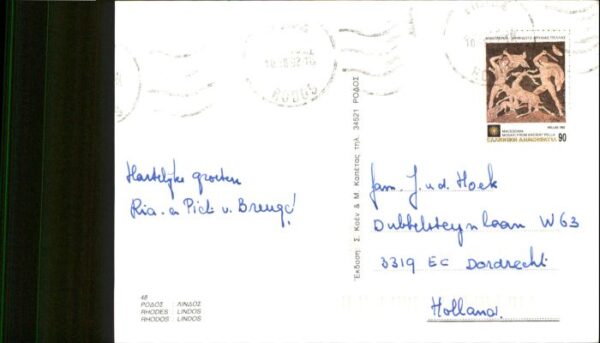 ΡΟΔΟΣ
RODOS
HELLAS 1992
MACEDONIA
MOSAIC FROM ANCIENT PELLA
ΕΛΛΗΝΙΚΗ ΔΗΜΟΚΡΑΤΙΑ 90
Hartelijke groeten
Ria en Piet v. Breugel
Έκδοση Σ. Κοέν & Μ. Καπέτας τηλ. 34521 ΡΟΔΟΣ
fam. J. v.d. Hoek
Dubbelsteynlaan W 63
3319 EC Dordrecht
Holland.
48
ΡΟΔΟΣ : ΛΙΝΔΟΣ
RHODES : LINDOS
RHODOS : LINDOS